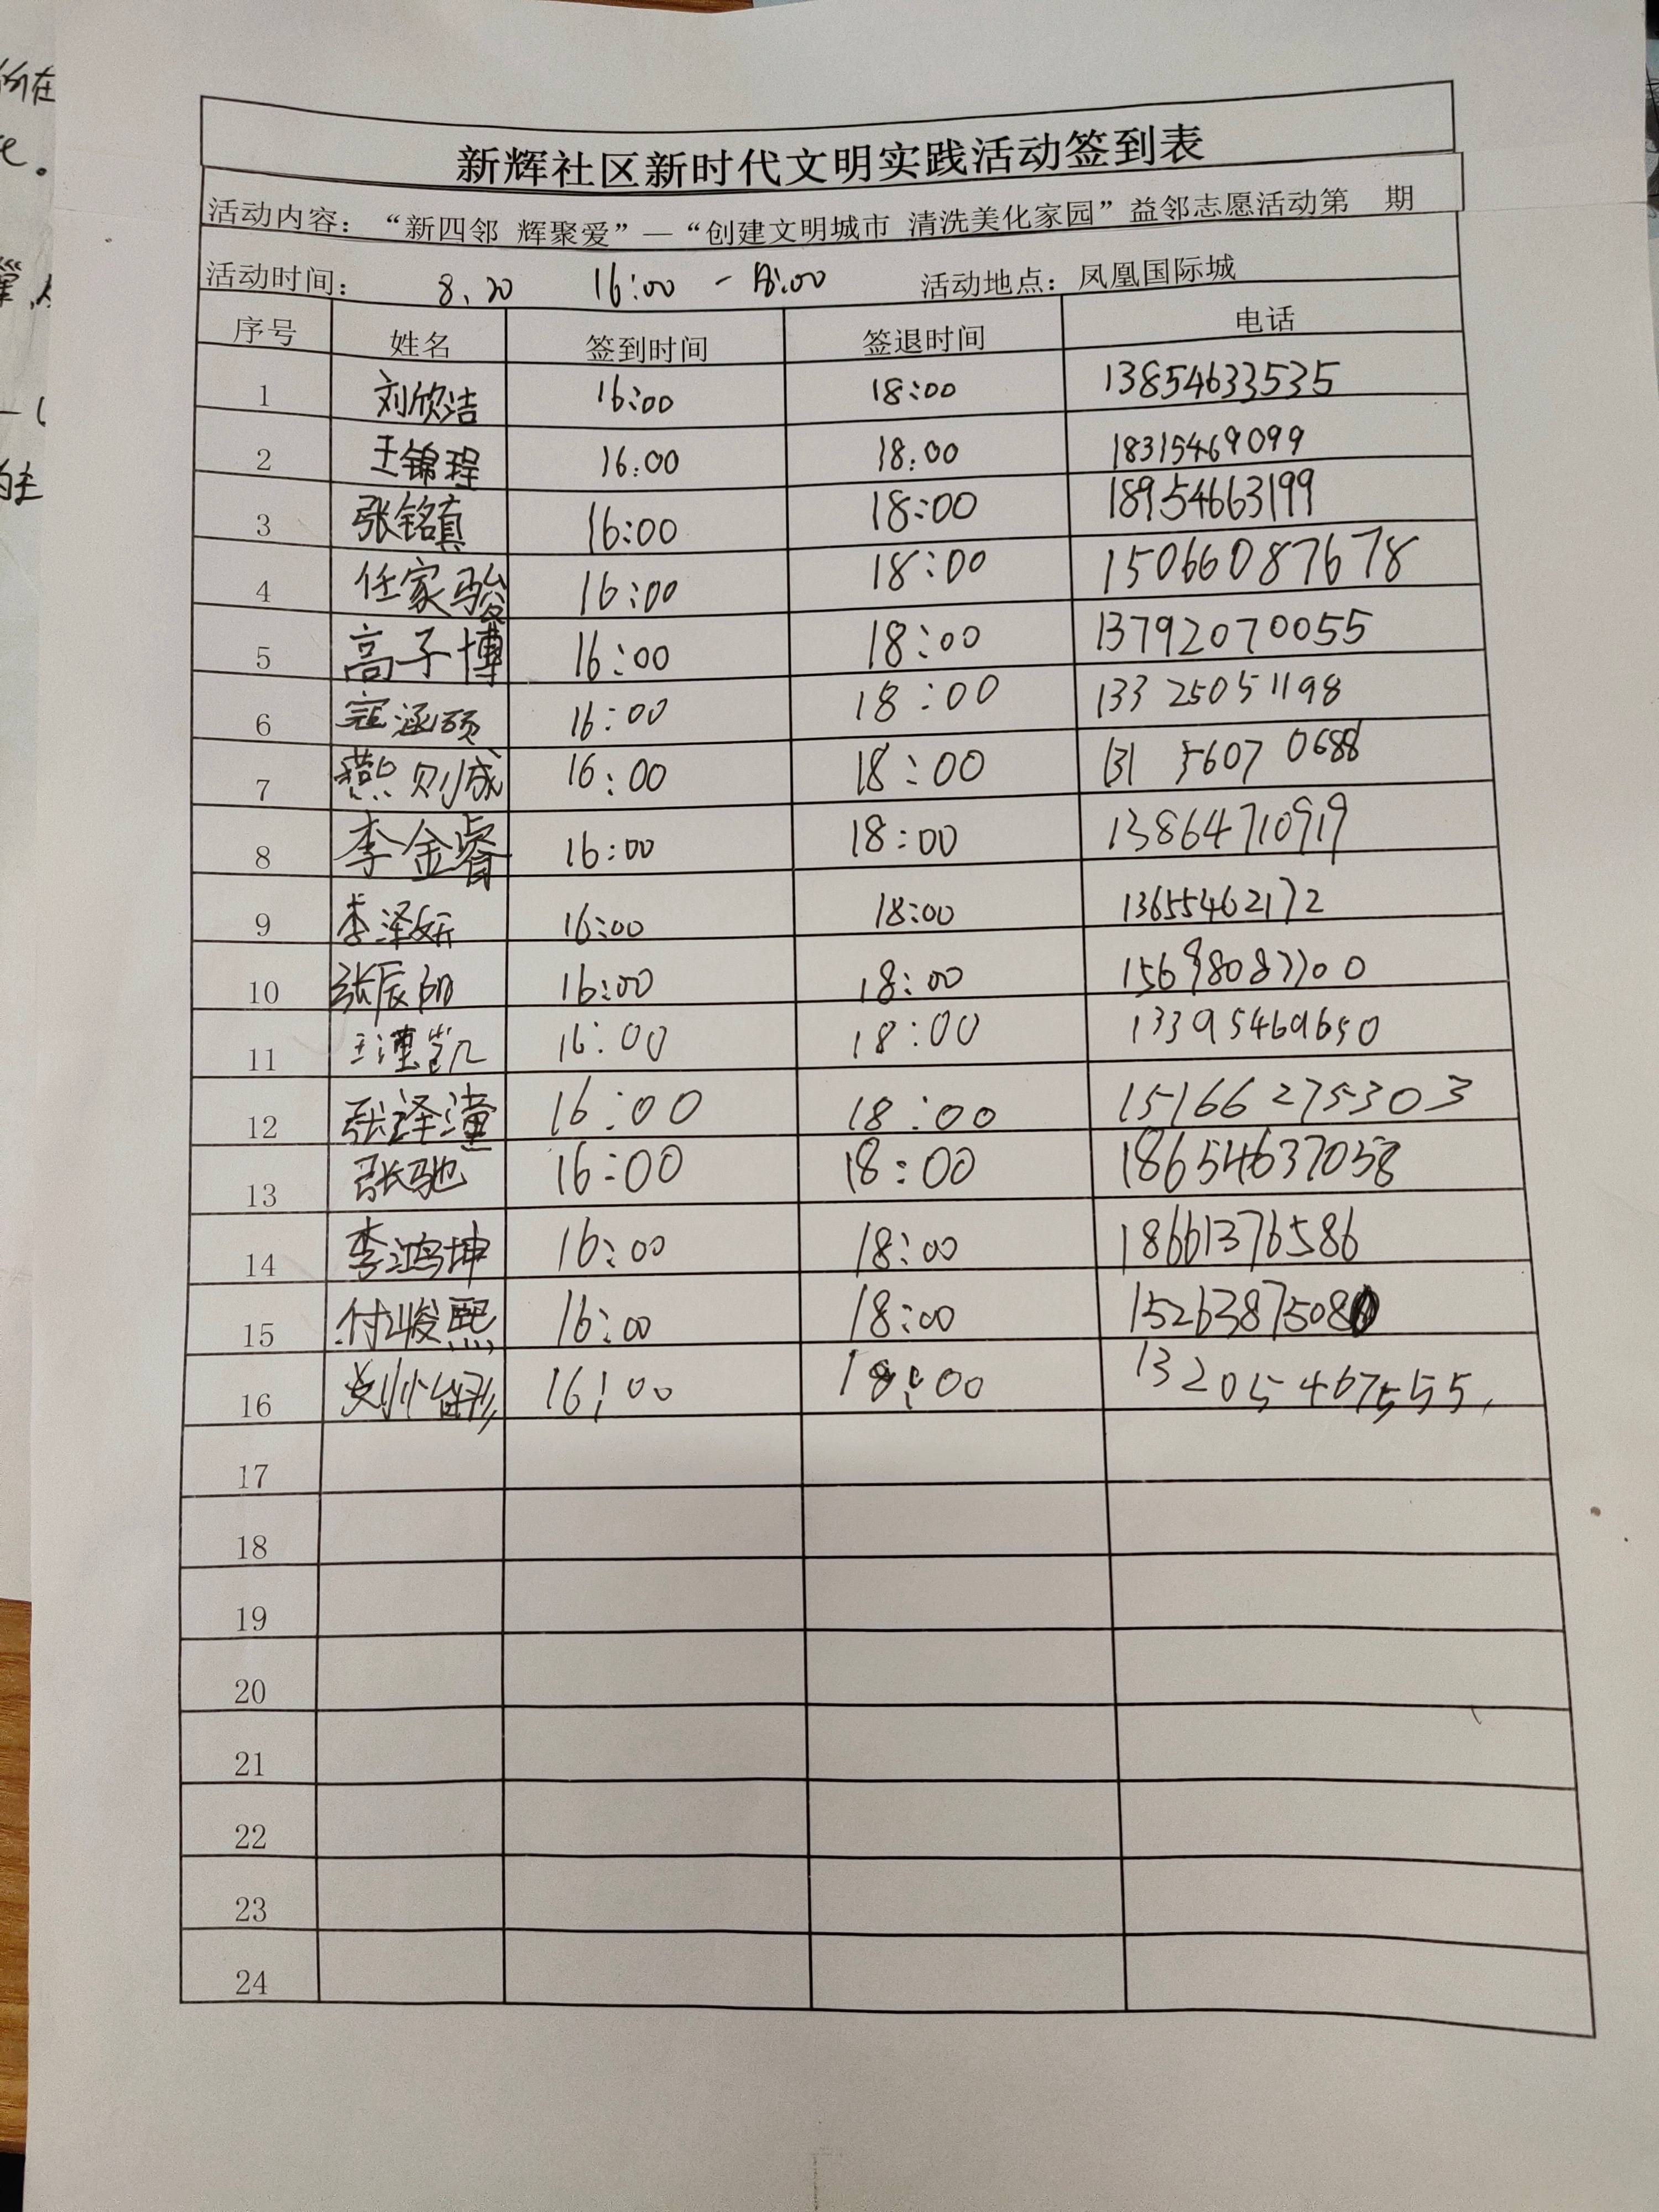 新辉社区新时代文明实践活动签到表
活动内容：“新四邻 辉聚爱”—“创建文明城市 清洗美化家园”益邻志愿活动第 期
活动时间： 8.20 16:00 - 18:00 活动地点：凤凰国际城
序号 姓名 签到时间 签退时间 电话
1 刘欣洁 16:00 18:00 13854633535
2 王锦程 16:00 18:00 18315469099
3 张铭真 16:00 18:00 18954663199
4 任家骏 16:00 18:00 15066087678
5 高子博 16:00 18:00 13792070055
6 寇涵硕 16:00 18:00 133 25051198
7 燕则成 16:00 18:00 131 5607 0688
8 李金睿 16:00 18:00 13864710919
9 李泽妍 16:00 18:00 13655462172
10 张辰 16:00 18:00 15698087700
11 王凯 16:00 18:00 13395469650
12 张泽潼 16:00 18:00 15166275303
13 张驰 16:00 18:00 18654637058
14 李鸿坤 16:00 18:00 18661376586
15 付峻熙 16:00 18:00 1526387508
16 刘 16:00 18:00 13205467555
17
18
19
20
21
22
23
24